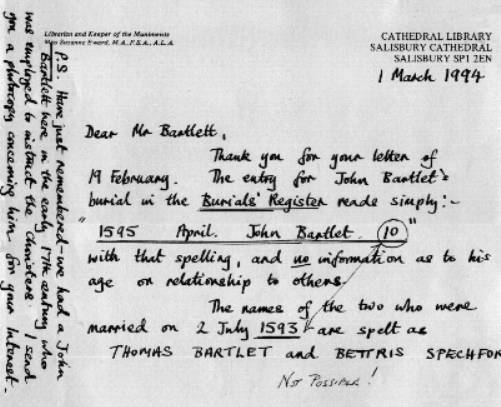 Librarian and Keeper of the Muniments
Miss Suzanne Eward, M.A., F.S.A., A.L.A.
CATHEDRAL LIBRARY
SALISBURY CATHEDRAL
SALISBURY SP1 2EN
1 March 1994
Dear Mr Bartlett,
Thank you for your letter of
19 February. The entry for John Bartlet's
burial in the Burials' Register reads simply:-
"1595 April. John Bartlet. 10"
with that spelling, and no information as to his
age or relationship to others.
The names of the two who were
married on 2 July 1593 are spelt as
THOMAS BARTLET and BETTRIS SPECHFOR
NOT POSSIBLE!
P.S. Have just remembered - we had a John
Bartlett here in the early 17th century who
was employed to instruct the choristers. I send
you a photocopy concerning him for your interest.